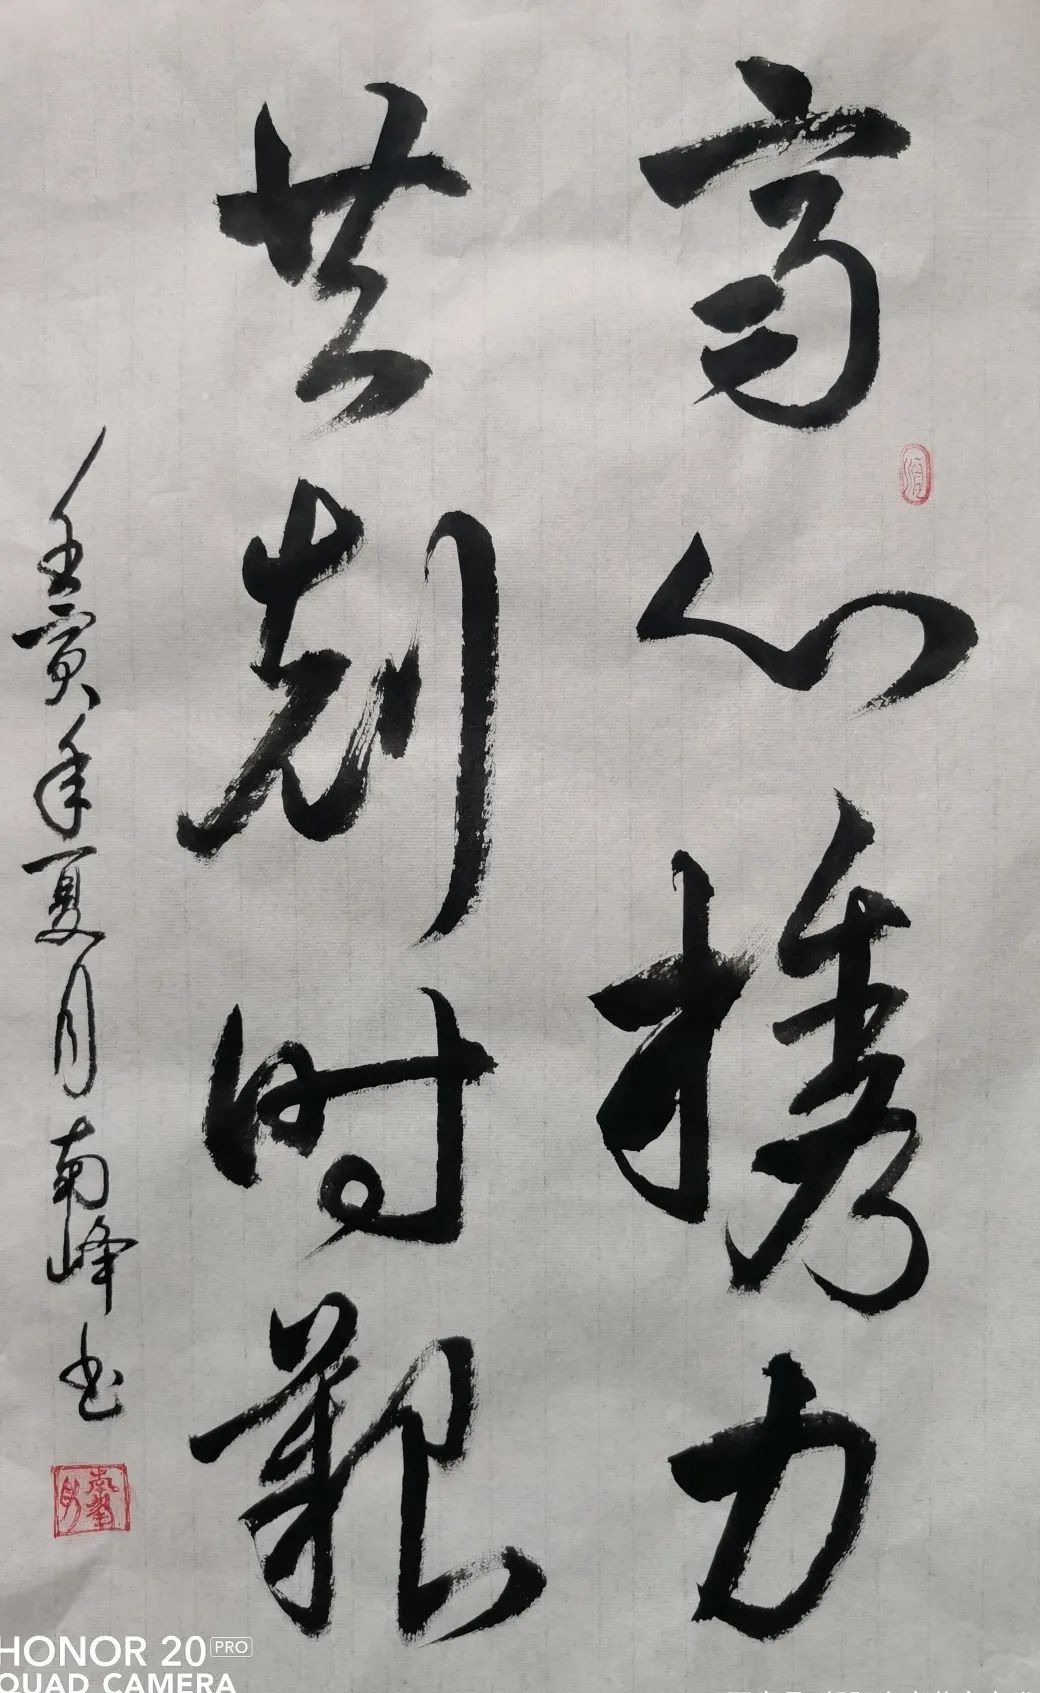 齐心携力
共克时艰
壬寅年夏月南峰书
HONOR 20 PRO
QUAD CAMERA